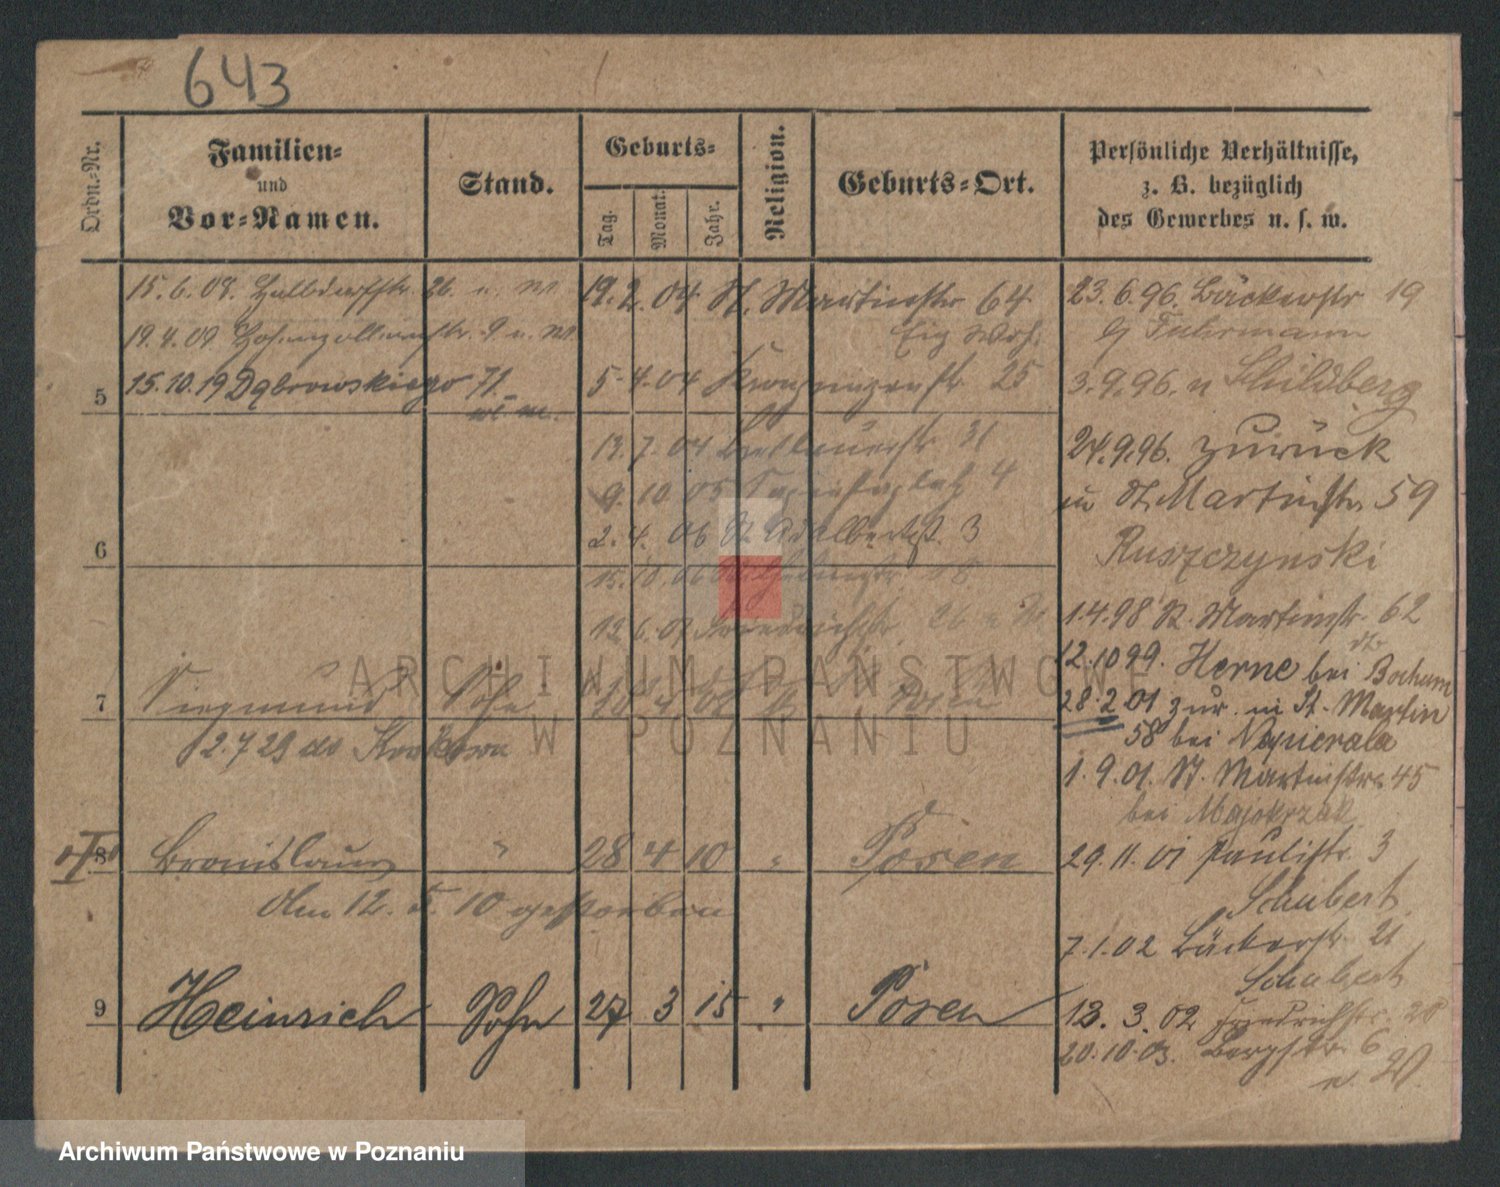 643
Ordn.-Nr.
Familien-
und
Vor-Namen.
Stand.
Geburts-
Tag.
Monat.
Jahr.
Religion.
Geburts-Ort.
Persönliche Verhältnisse,
z. B. bezüglich
des Gewerbes u. s. w.
15.6.08. 26. u. W
19.4.09 Hohenzollernstr. 9 u. W.
5 15.10.19 Dąbrowskiego 71
wł. m.
19.2.04 St. Martinstr 64
Eig Woh.
5.4.04 Kronprinzenstr. 25
13.7.04 31
9.10.05 Sapiehaplatz 4
2.4.06 St Adalbertstr. 3
6
15.10.06 18
19.6.07 Friedrichstr. 26 u W
7 Siegmund Sohn Posen
2.7.23 do Krakowa
8 Bronislaus " 28 4 10 " Posen
Am 12. 5. 10 gestorben
9 Heinrich Sohn 27 3 15 " Posen
23.6.96. Bäckerstr 19
b/ Fuhrmann
3.9.96. n Schildberg
24.9.96. zurück
in St. Martinstr. 59
Ruszczynski
1.4.98 St. Martinstr. 62
12.10 99. Herne bei Bochum
28.2.01 zur. in St. Martin
58 bei Napierala
1.9.01. St. Martinstr. 45
bei
29.11.01 Paulistr. 3
Schubert
7.1.02 Bäckerstr. 21
Schubert
13.3.02 Friedrichstr. 20
20.10.03. Bergstr. 6
n. W.
ARCHIWUM PAŃSTWOWE
W POZNANIU
Archiwum Państwowe w Poznaniu